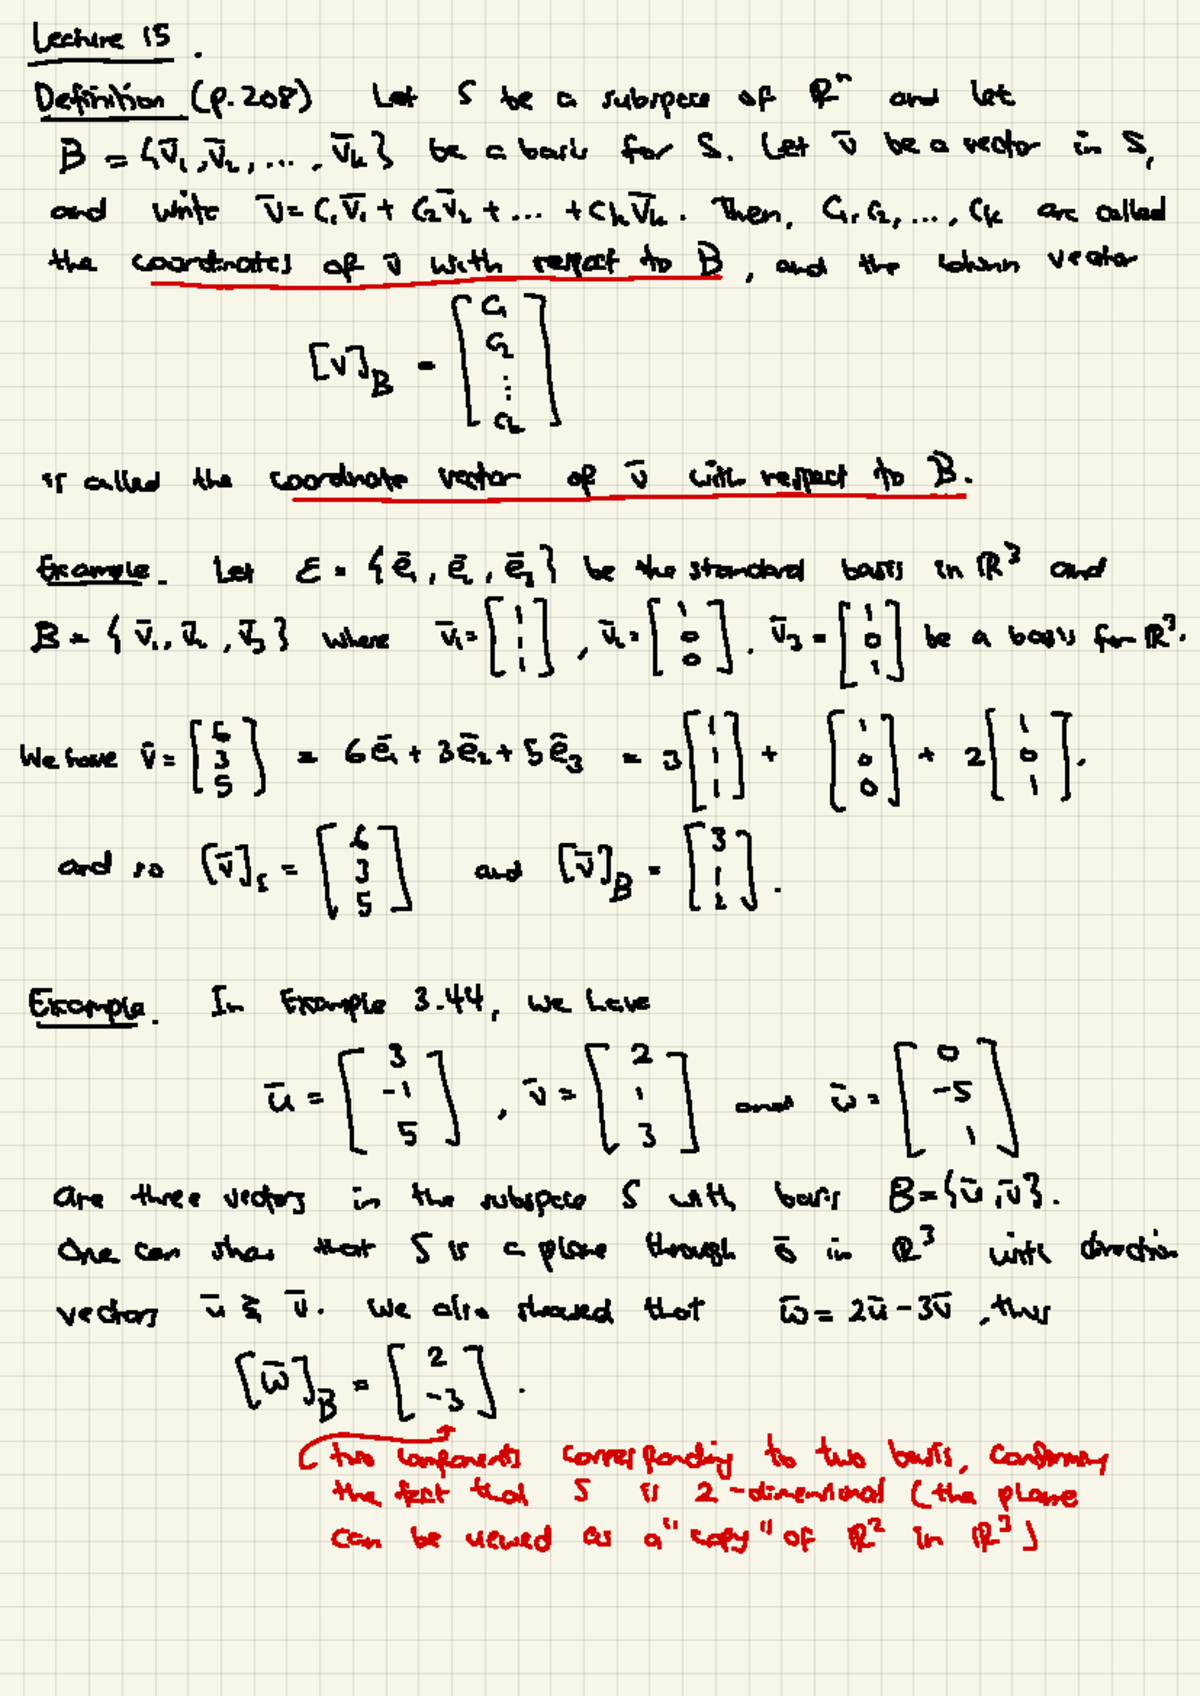 Lecture 15.
Definition (p.208) Let S be a subspace of ℝⁿ and let
B = {v̄₁, v̄₂, ..., v̄ₖ} be a basis for S. Let v̄ be a vector in S,
and write v̄ = c₁v̄₁ + c₂v̄₂ + ... + cₖv̄ₖ. Then, c₁, c₂, ..., cₖ are called
the coordinates of v̄ with respect to B, and the column vector
[v]_B = [c₁ c₂ ⋮ cₖ]
is called the coordinate vector of v̄ with respect to B.
Example. Let ℰ = {ē₁, ē₂, ē₃} be the standard basis in ℝ³ and
B = {v̄₁, v̄₂, v̄₃} where v̄₁ = [1 1 1], v̄₂ = [1 0 0], v̄₃ = [1 0 1] be a basis for ℝ³.
We have v̄ = [6 3 5] = 6ē₁ + 3ē₂ + 5ē₃ = 3[1 1 1] + [1 0 0] + 2[1 0 1].
and so [v̄]_ℰ = [6 3 5] and [v̄]_B = [3 1 2].
Example. In Example 3.44, we have
ū = [3 -1 5], v̄ = [2 1 3] and w̄ = [0 -5 1]
are three vectors in the subspace S with basis B = {ū, v̄}.
One can show that S is a plane through ō in ℝ³ with direction
vectors ū & v̄. We also showed that w̄ = 2ū - 3v̄, thus
[w̄]_B = [2 -3].
two components corresponding to two basis, confirming
the fact that S is 2-dimensional (the plane
can be viewed as a "copy" of ℝ² in ℝ³)